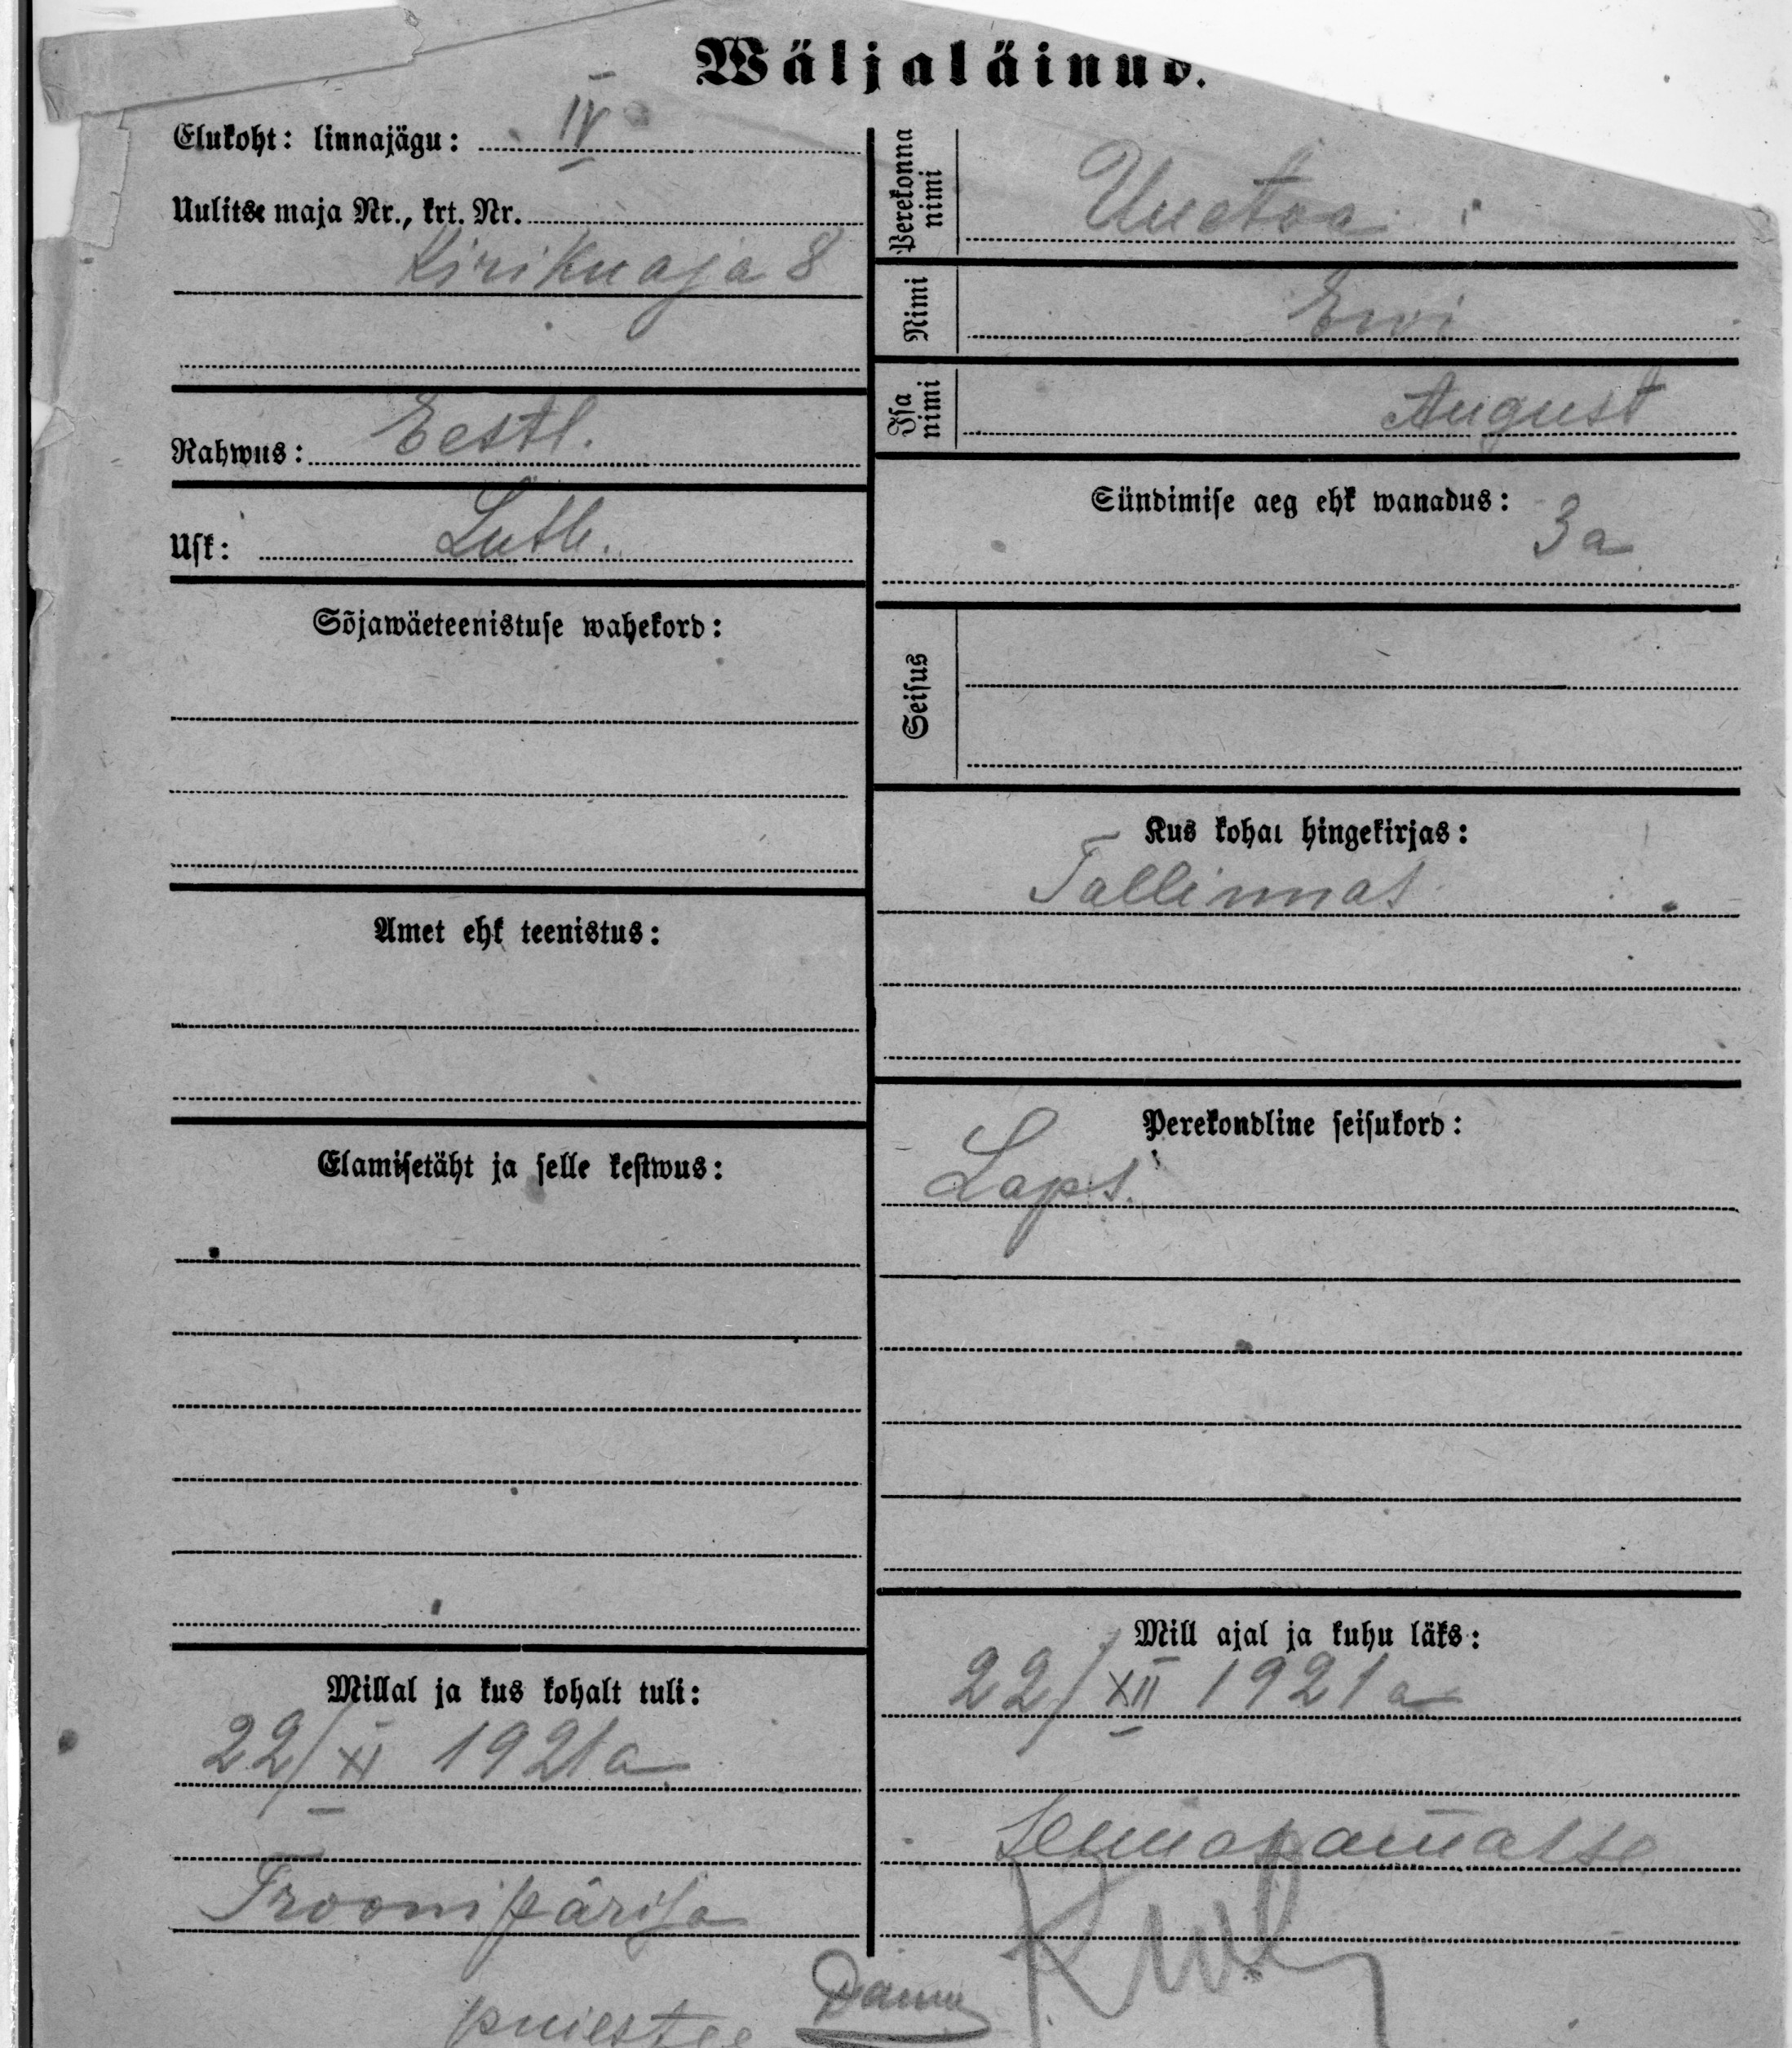 Wäljaläinud.
Elukoht: linnajägu: IV
Uulitse maja Nr., krt. Nr.
Kirikuaja 8
Rahwus: Eestl.
Usk: Luth.
Sõjawäeteenistuse wahekord:
Amet ehk teenistus:
Elamisetäht ja selle kestwus:
Millal ja kus kohalt tuli:
22/XI 1921 a
Troonipärija
puiestee
Perekonna nimi Uuetoa
Nimi Ewi
Isa nimi August
Sündimise aeg ehk wanadus:
3 a
Seisus
Kus kohal hingekirjas:
Tallinnas
Perekondline seisukord:
Laps.
Mill ajal ja kuhu läks:
22/XII 1921 a